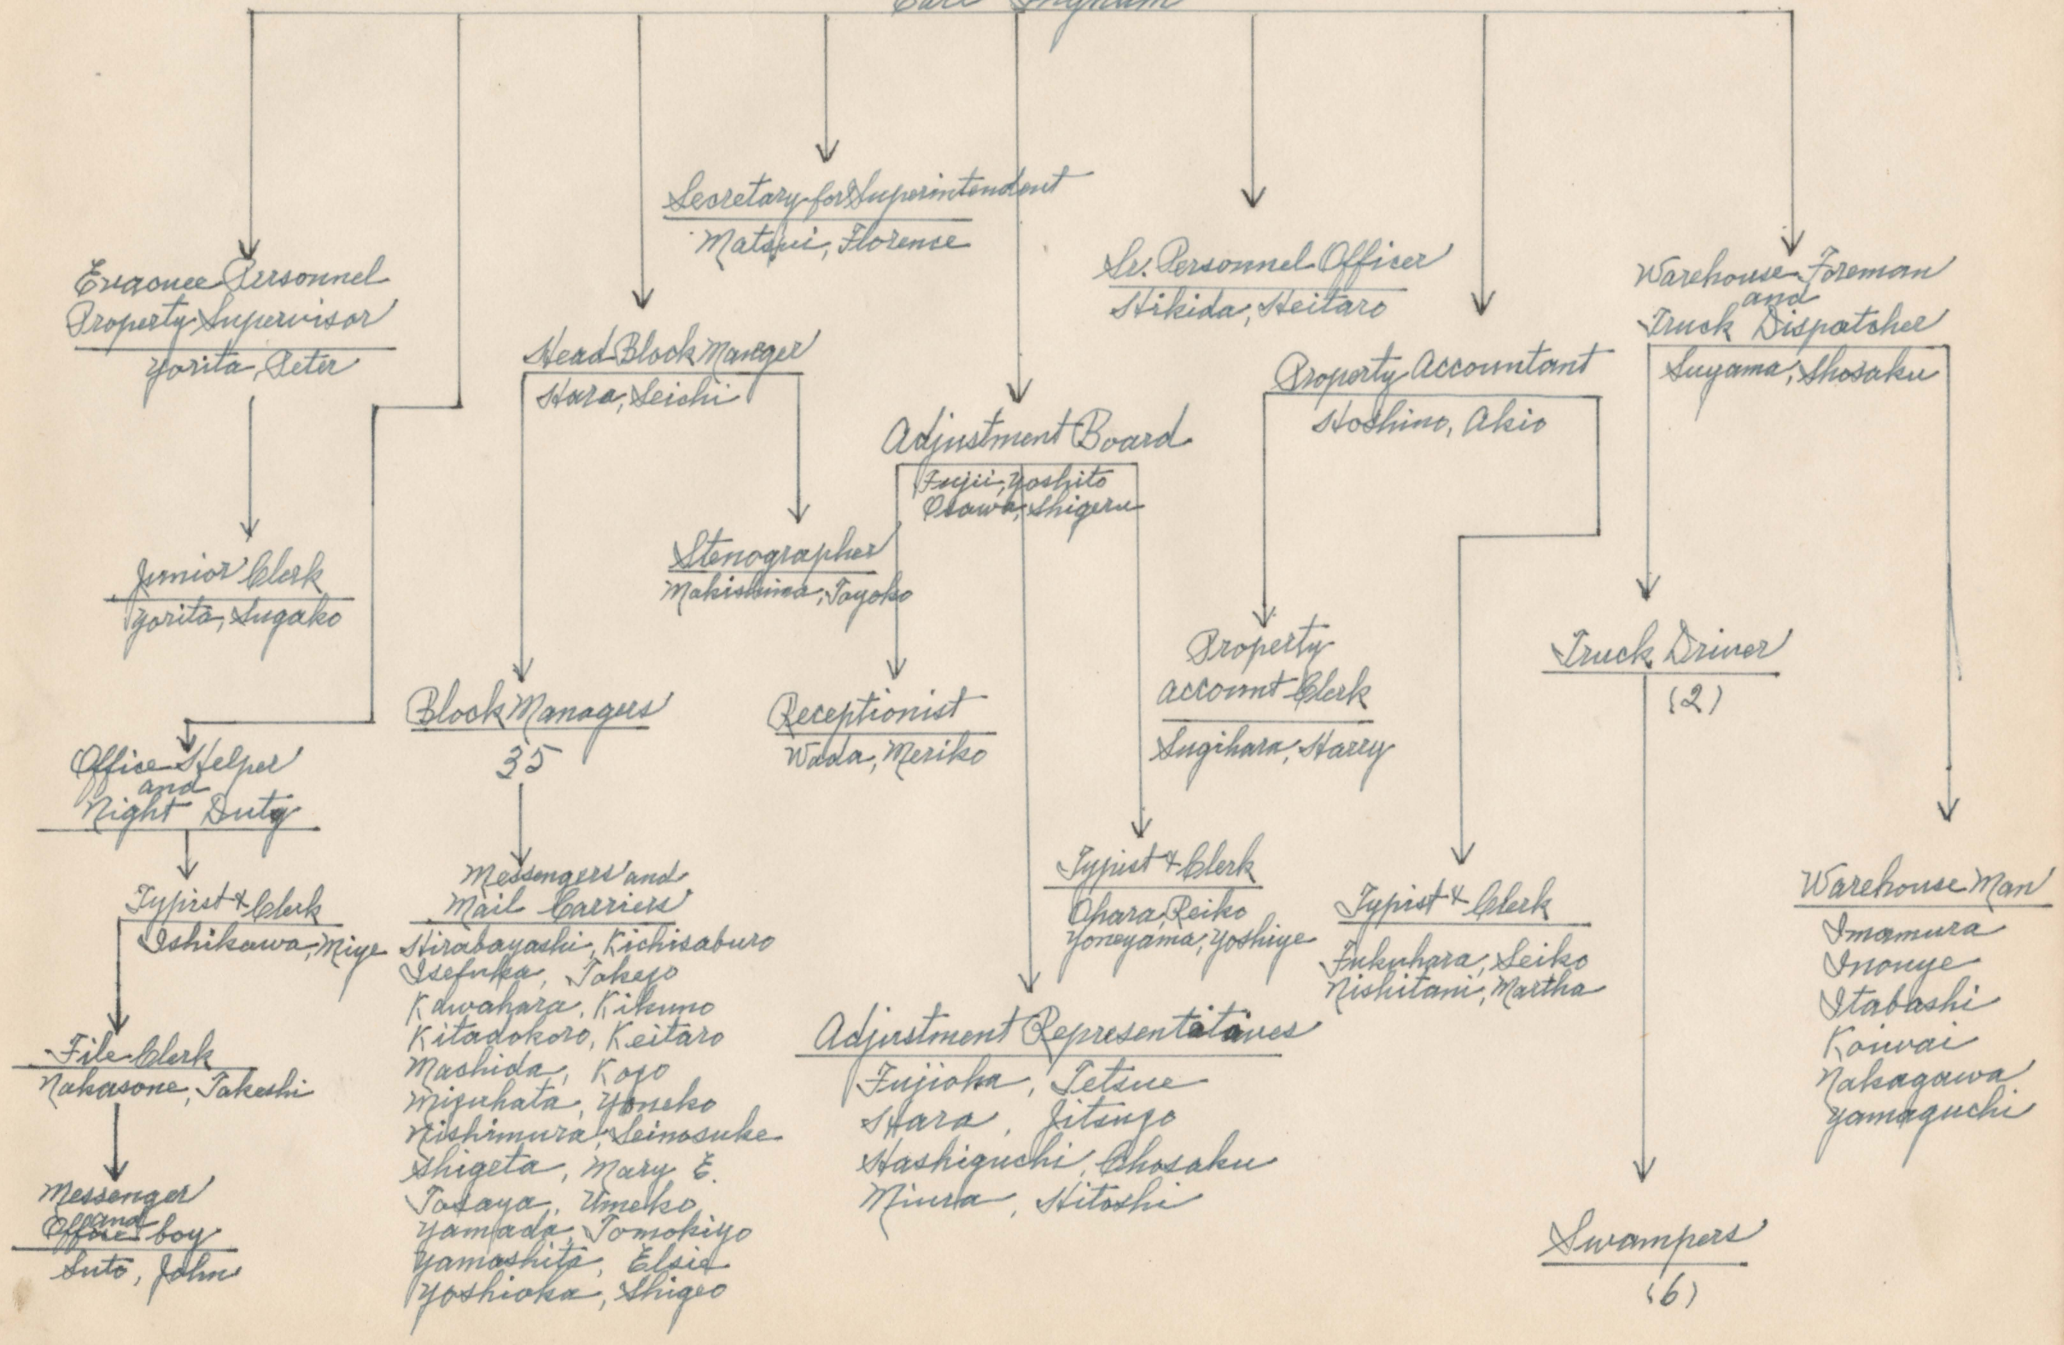 Secretary for Superintendent
Matsui, Florence
Evacuee Personnel
Property Supervisor
Yorita, Peter
Junior Clerk
Yorita, Sugako
Office Helper
and
Night Duty
Typist & Clerk
Ishikawa, Miye
File Clerk
Nakasone, Takeshi
Messenger
and
Office boy
Suto, John
Head Block Manger
Hara, Seichi
Stenographer
Makishima, Toyoko
Block Managers
35
Messengers and
Mail Carriers
Hirabayashi, Kichisaburo
Isefuka, Takejo
Kawahara, Kikuno
Kitadokoro, Keitaro
Mashida, Kojo
Mizuhata, Yoneko
Nishimura, Seinosuke
Shigeta, Mary E.
Tosaya, Umeko
Yamada, Tomokiyo
Yamashita, Elsie
Yoshioka, Shigeo
Adjustment Board
Fujii, Yoshito
Osawa, Shigeru
Receptionist
Wada, Meriko
Typist & Clerk
Ohara, Reiko
Yoneyama, Yoshiye
Adjustment Representatives
Fujioka, Tetsue
Hara, Jitsujo
Hashiguchi, Chosaku
Miura, Hitoshi
Sr. Personnel Officer
Hikida, Heitaro
Property Accountant
Hoshino, Akio
Property
Account Clerk
Sugihara, Harry
Typist & Clerk
Fukuhara, Seiko
Nishitani, Martha
Warehouse Foreman
and
Truck Dispatcher
Suyama, Shosaku
Truck Driver
(2)
Swampers
(6)
Warehouse Man
Imamura
Inouye
Itabashi
Koiwai
Nakagawa
Yamaguchi